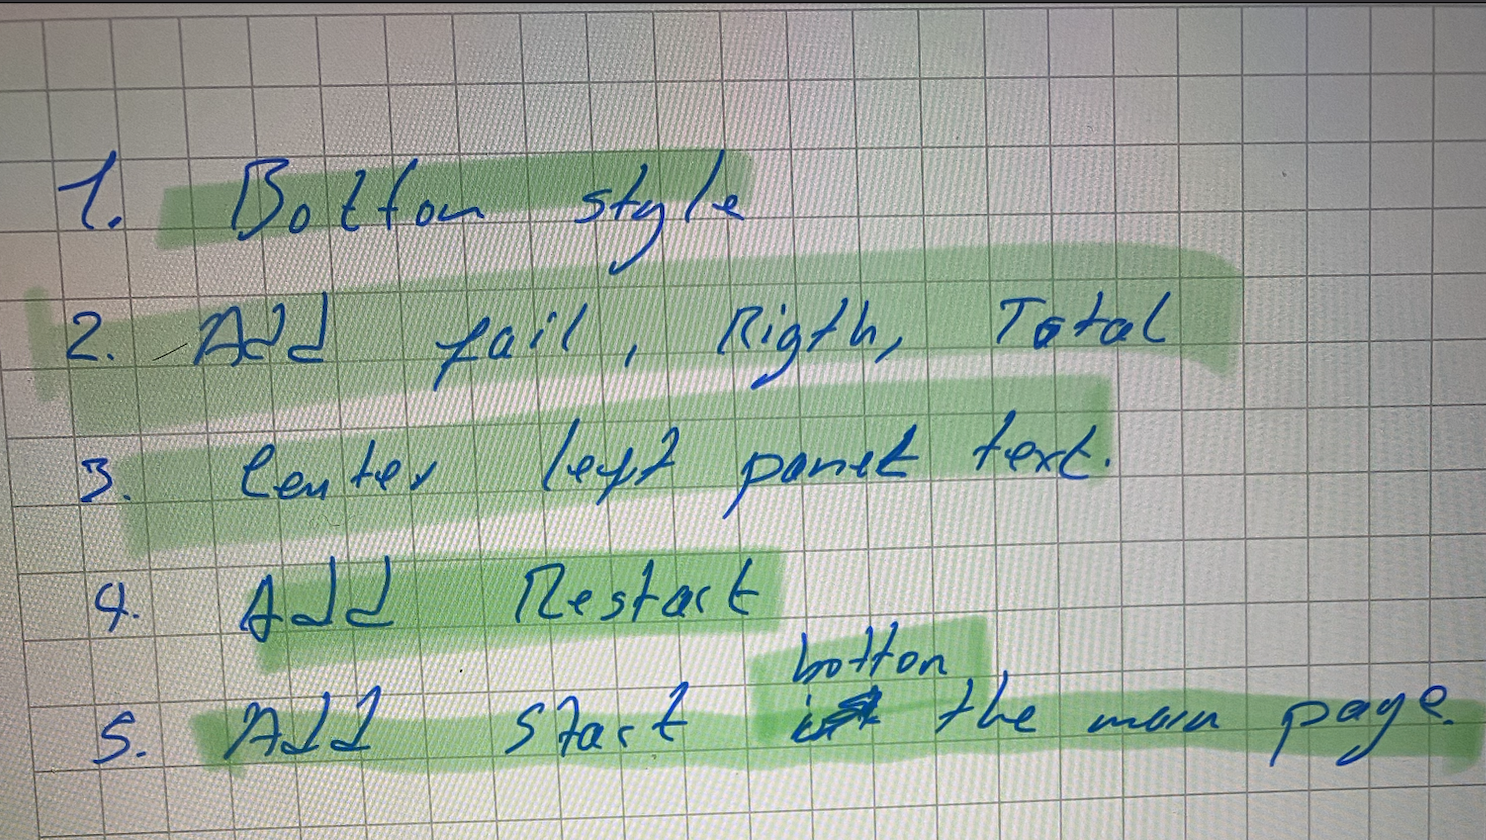 1. Botton style
2. Add fail, Rigth, Total
3. Center left panel text.
4. Add Restart
botton
5. Add start the main page.